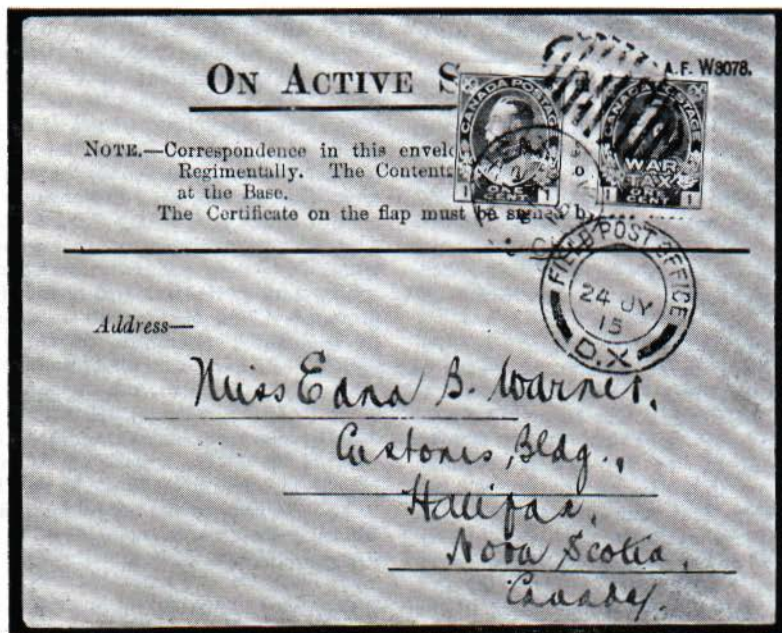 ON ACTIVE S
A.F. W3078.
NOTE.—Correspondence in this envelo
Regimentally. The Contents
at the Base.
The Certificate on the flap must be signed b
CANADA POSTAGE
1 ONE CENT 1
CANADA POSTAGE
WAR
TAX
1 ONE CENT 1
FIELD POST OFFICE
24 JY
15
D.X
Address—
Miss Edna B. Warner,
Customs, Bldg.,
Halifax,
Nova Scotia,
Canada.